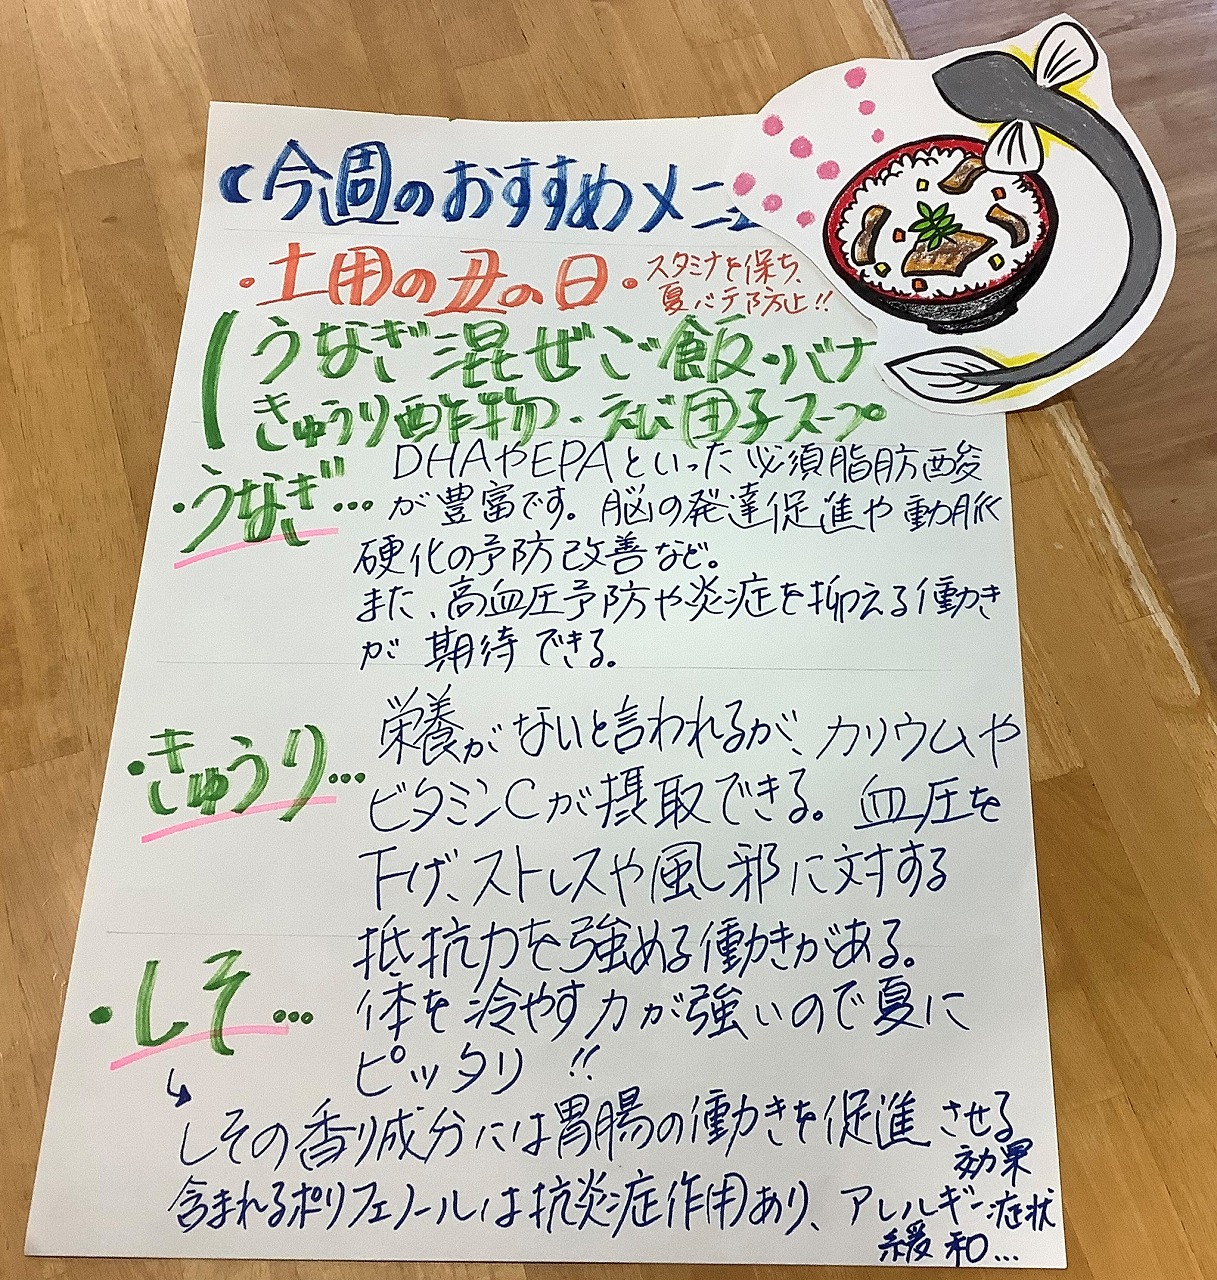 今週のおすすめメニュ
・土用の丑の日・
スタミナを保ち、
夏バテ防止!!
うなぎ混ぜご飯・バナ
きゅうり酢物・えび団子スープ
・うなぎ…
DHAやEPAといった必須脂肪酸
が豊富です。脳の発達促進や動脈
硬化の予防改善など。
また、高血圧予防や炎症を抑える働き
が期待できる。
・きゅうり…
栄養がないと言われるが、カリウムや
ビタミンCが摂取できる。血圧を
下げ、ストレスや風邪に対する
抵抗力を強める働きがある。
体を冷やす力が強いので夏に
ピッタリ!!
・しそ…
しその香り成分には胃腸の働きを促進させる
効果
含まれるポリフェノールは抗炎症作用あり、アレルギー症状
緩和…